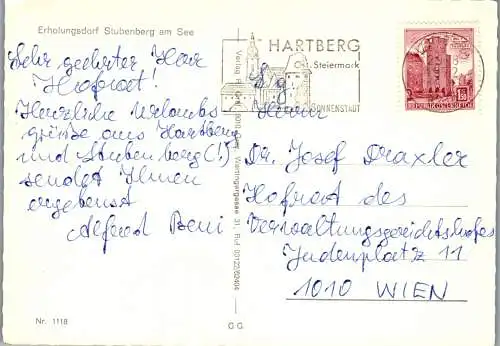 Erholungsdorf Stubenberg am See
Sehr geehrter Herr
Hofrat!
Herzliche Urlaubs
grüße aus Hartberg
und Stubenberg (!)
sendet Ihnen
ergebenst
Alfred
HARTBERG
Ost-Steiermark
SONNENSTADT
REPUBLIK ÖSTERREICH
S. g.
Herrn
Dr. Josef Draxler
Hofrat des
Verwaltungsgerichtshofes
Judenplatz 11
1010 WIEN
Nr. 1118
G.G.